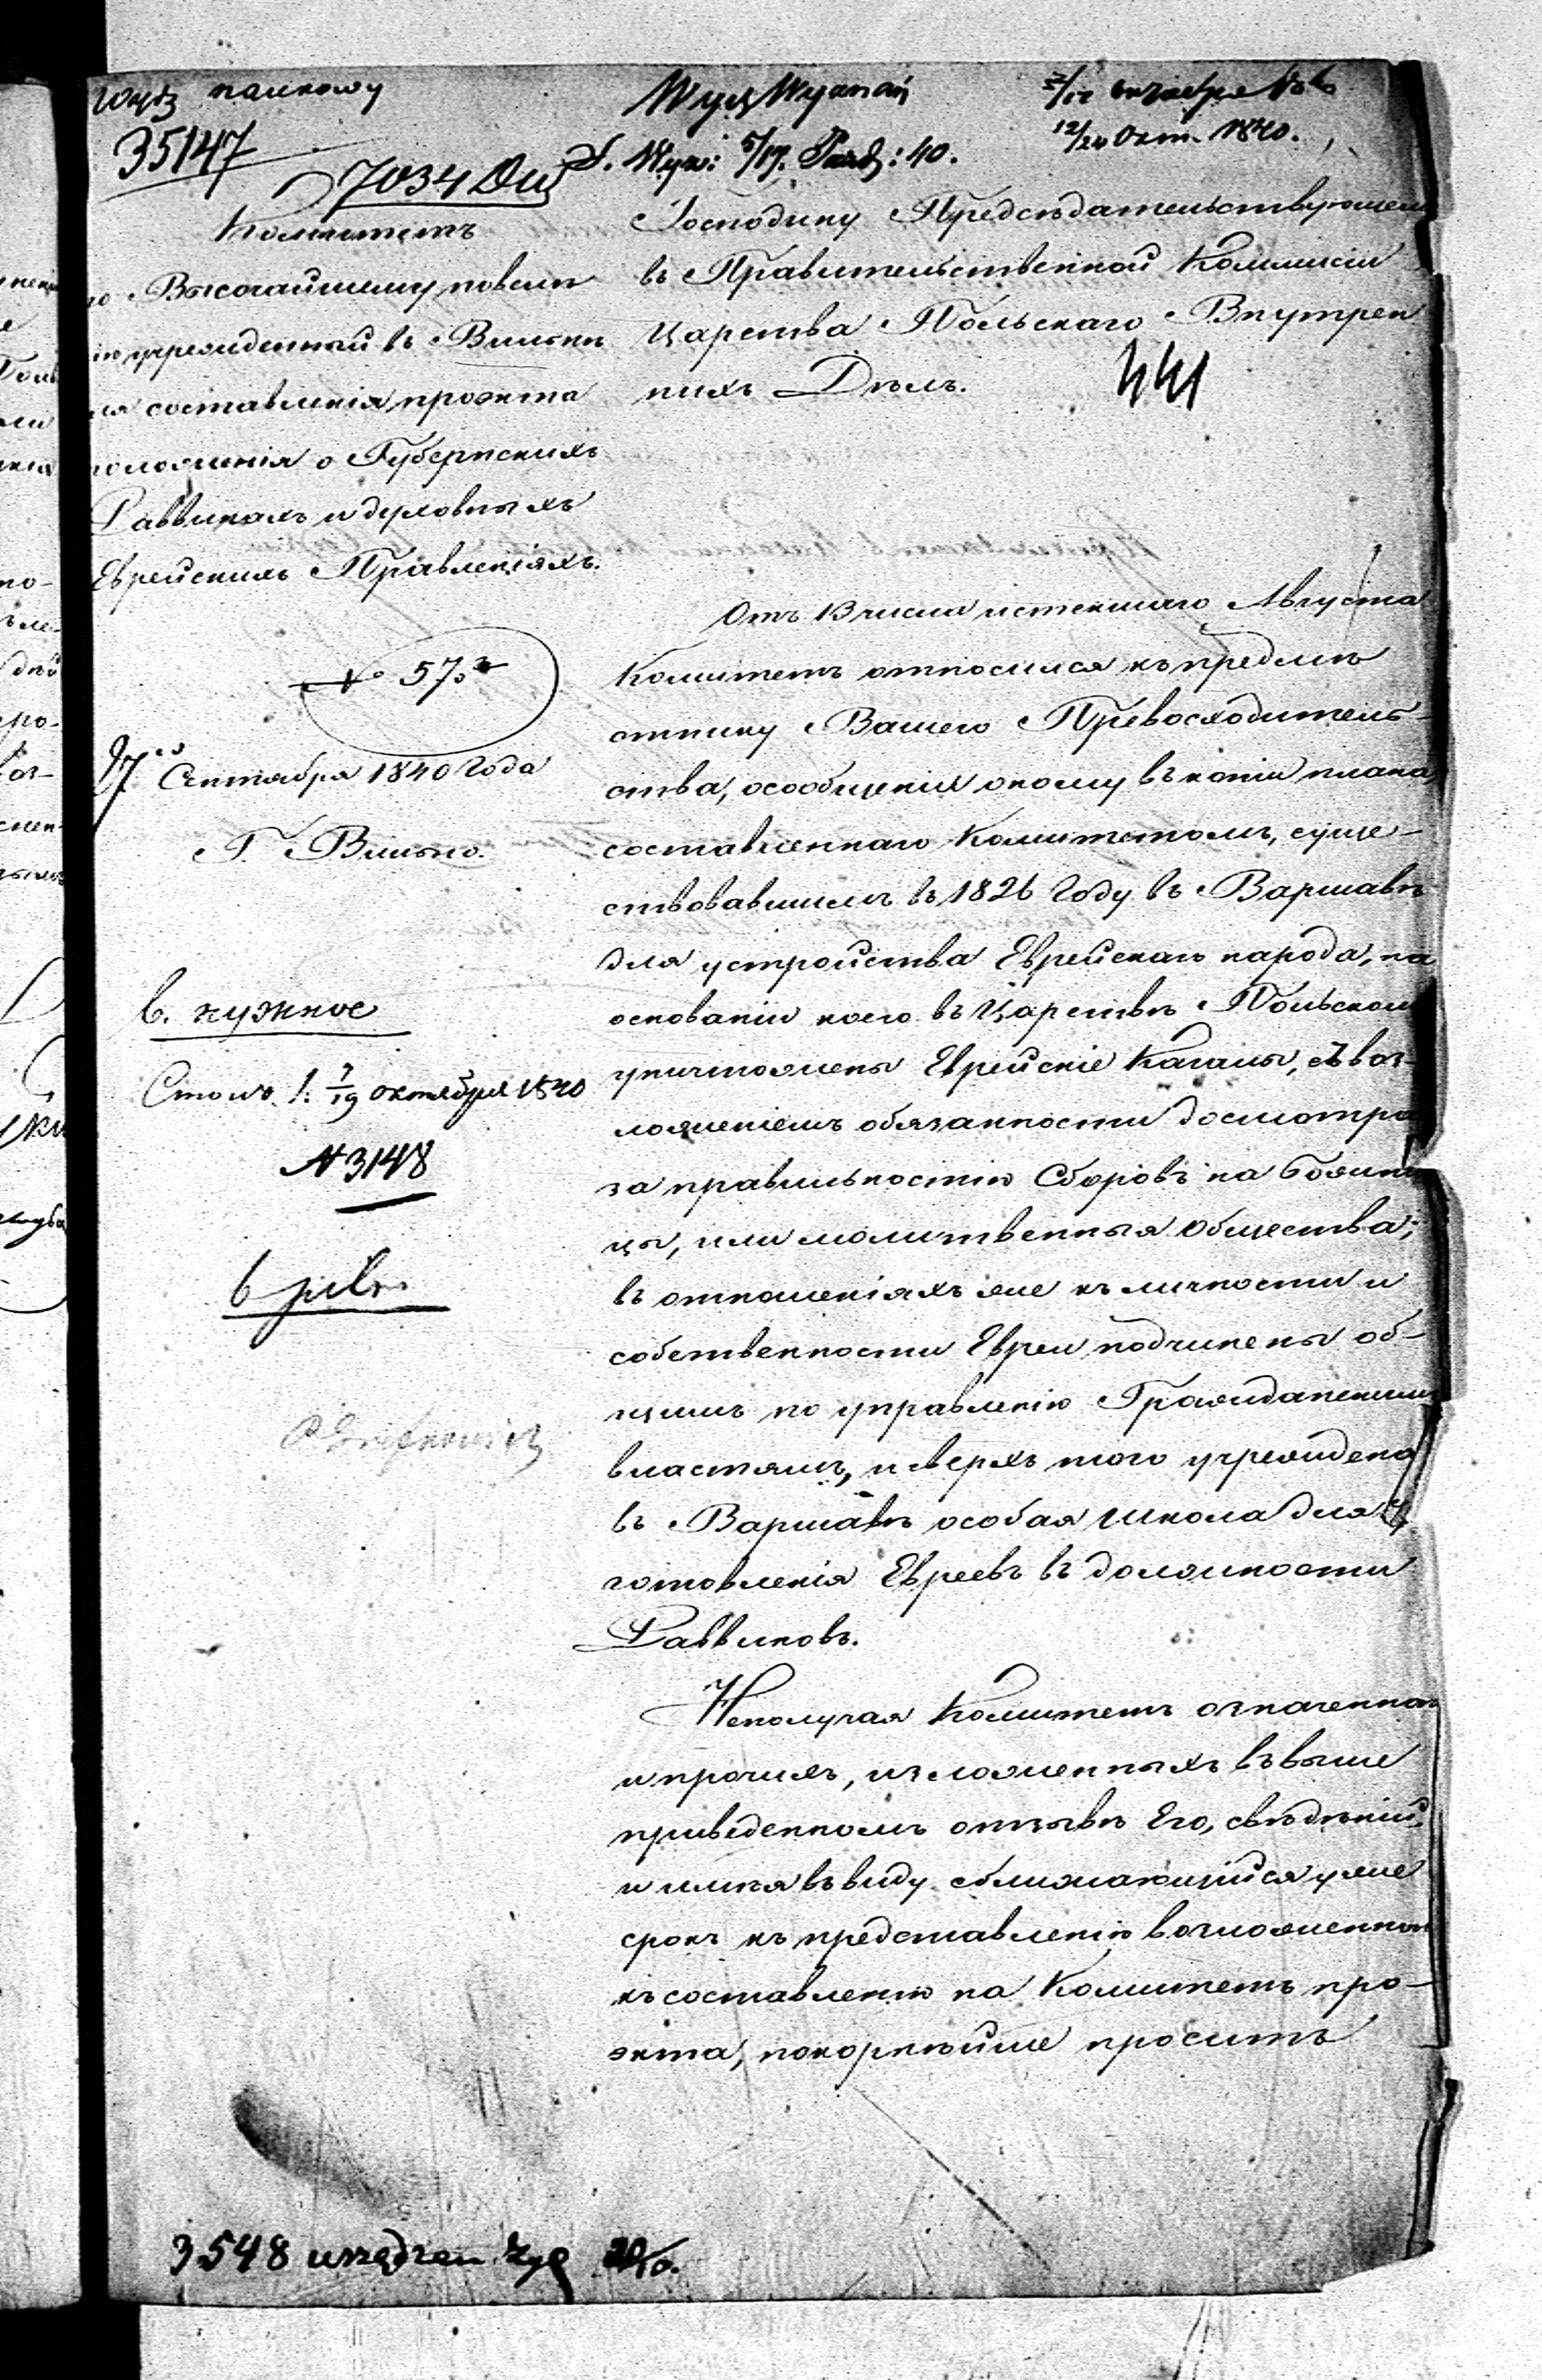 Wydz naukowy
35147
7034 Dw
Комитетъ
по Высочайшему повелѣ
нію учрежденный въ Вильнѣ
для составленія проэкта
положенія о Губернскихъ
Раввинахъ и духовныхъ
Еврейскихъ Правленіяхъ.
№ 573
27го Сентября 1840 года
Г. Вильно.
в. нужное
Столъ 1. 7/19 октября 1840
N 3148
Wydz Wyznań
5/17. Paźd: 40.
12/24 Окт. 1840.
Господину Предсѣдательствующему
въ Правительственной Коммисіи
Царства Польскаго Внутрен
нихъ Дѣлъ.
441
Отъ 13 числа истекшаго Августа
Комитетъ относился къ предмѣ
стнику Вашего Превосходитель-
ства, о сообщеніи оному въ копіи плана,
составленнаго Комитетомъ, суще-
ствовавшимъ въ 1826 году въ Варшавѣ
для устройства Еврейскаго народа, на
основаніи коего въ Царствѣ Польскомъ
уничтожены Еврейскіе Кагалы, съ воз-
ложеніемъ обязанности досмотра
за правильностію Сборовъ на Божни
цы, или молитвенныя общества;
въ отношеніяхъ же къ личности и
собственности Евреи подчинены об-
щимъ по управленію Гражданскимъ
властямъ, и сверхъ того учреждена
въ Варшавѣ особая школа для
готовленія Евреевъ въ должности
Раввиновъ.
Неполучая Комитетъ означенной
и прочихъ, изложенныхъ въ выше
приведенномъ отзывѣ Его, свѣдѣній,
и имѣя въ виду сближающійся уже
срокъ къ представленію возложеннаго
къ составленію на Комитетъ про-
экта, покорнѣйше проситъ
3548 urządzen. Żyd 20/10.